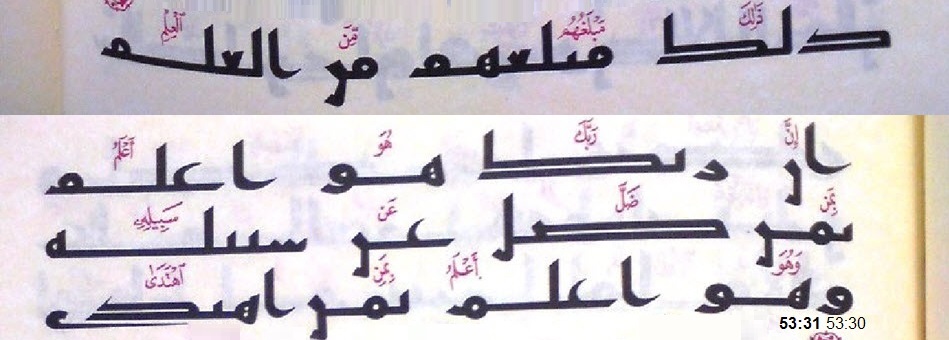 ذَٰلِكَ مَبْلَغُهُم مِّنَ ٱلْعِلْمِ
دلك مبلعهم من العلم
إِنَّ رَبَّكَ هُوَ أَعْلَمُ
ان ربك هو اعلم
بِمَن ضَلَّ عَن سَبِيلِهِ
بمن صل عن سبيله
وَهُوَ أَعْلَمُ بِمَنِ ٱهْتَدَىٰ
وهو اعلم بمن اهتدى
53:31 53:30